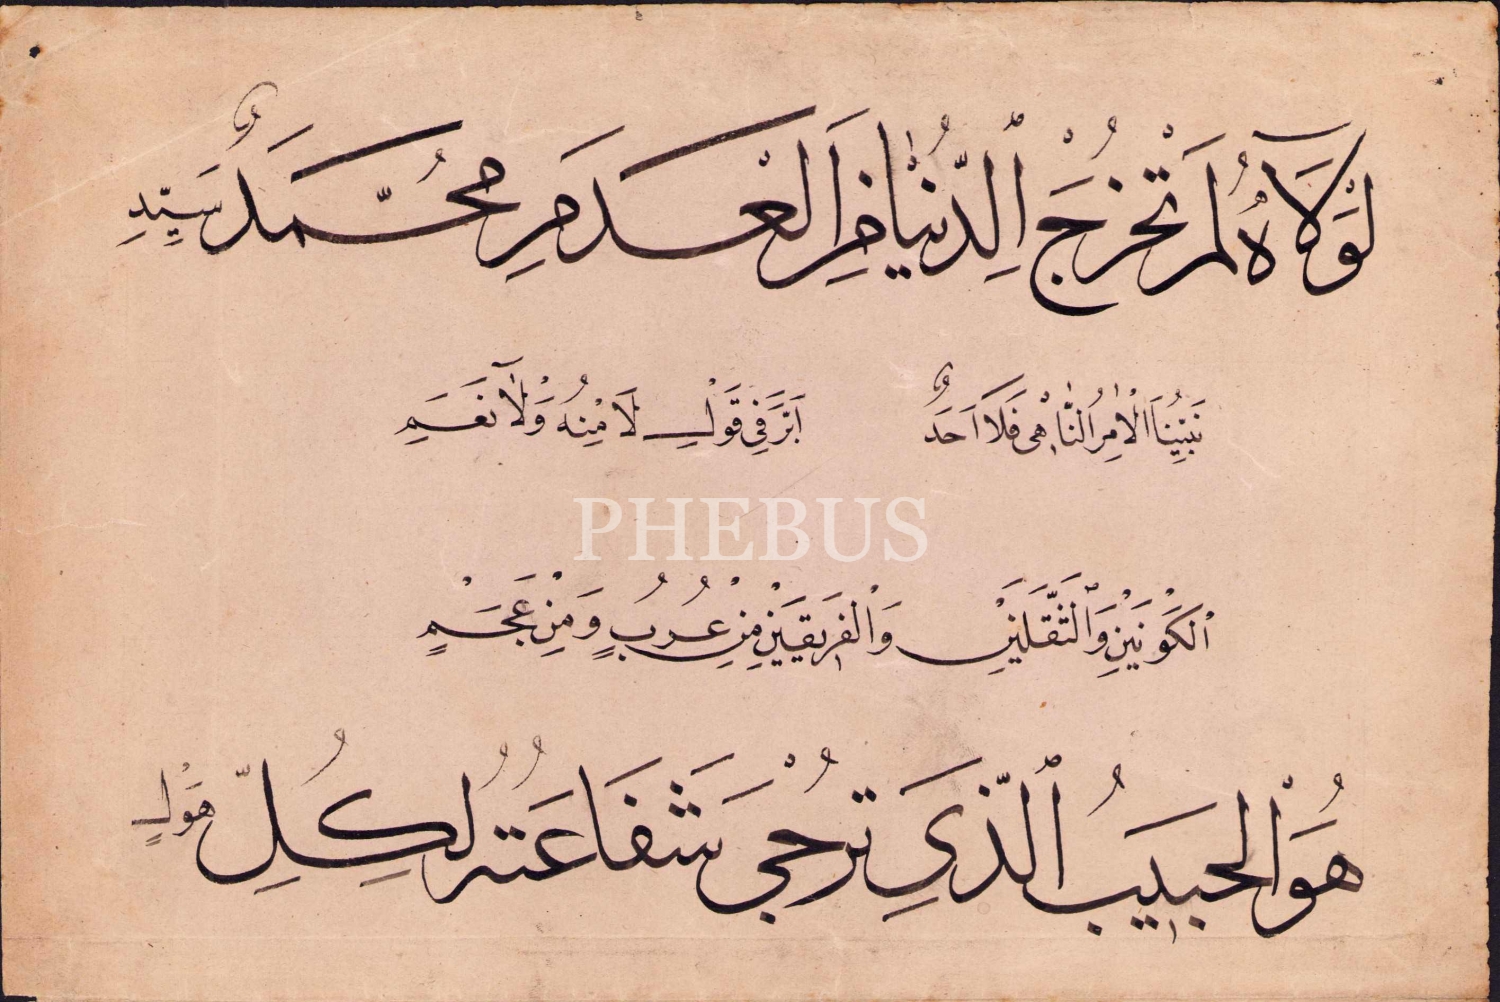 لَوْلَاهُ لَمْ تَخْرُجِ الدُّنْيَا مِنَ الْعَدَمِ مُحَمَّدٌ سَيِّدِ
نَبِيُّنَا الْاٰمِرُ النَّاهِي فَلَا اَحَدٌ اَبَرَّ فِي قَوْلِ لَا مِنْهُ وَلَا نَعَمِ
PHEBUS
الْكَوْنَيْنِ وَالثَّقَلَيْنِ وَالْفَرِيقَيْنِ مِنْ عُرْبٍ وَمِنْ عَجَمٍ
هُوَ الْحَبِيبُ الَّذِي تُرْجَى شَفَاعَتُهُ لِكُلِّ هَوْلٍ